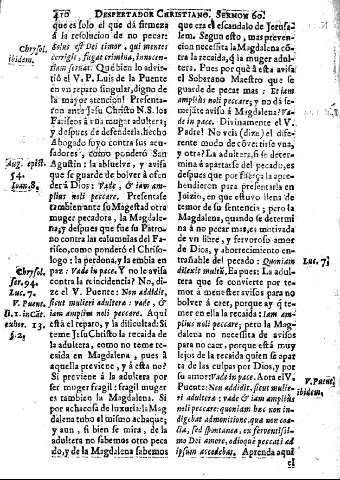 410 DESPERTADOR CHRISTIANO. SERMON 60.
que es lo que dà firmeza
à la resolucion de no pecar:
Solus est Dei timor, qui mentes
corrigit, fugat crimina, innocen-
tiam servat. Què bien lo advir-
tiò el V.P. Luis de la Puente
en vn reparo singular, digno de
la mayor atencion! Presenta-
ron ante Jesu Christo N.S. los
Fariseos à vna muger adultera,
y despues de defenderla, hecho
Abogado suyo contra sus acu-
sadores, como ponderò San
Agustin: la absuelve, y avisa
que se guarde de bolver à ofen-
der à Dios: Vade, & iam am-
plius noli peccare. Presentase
tambien ante su Magestad otra
muger pecadora, la Magdale-
na, y despues que fue su Patro-
no contra las calumnias del Fa-
riseo, como ponderò el Chriso-
logo: la perdona, y la embia en
paz: Vade in pace. Y no le avisa
contra la reincidencia? No, di-
ze el V. Puente: Non addidit,
sicut mulieri adulteræ: vade, &
iam amplius noli peccare. Aqui
està el reparo, y la dificultad: Si
teme Jesu Christo la recaida de
la adultera, como no teme re-
caida en Magdalena, pues à
aquella previene, y à esta no?
Si previene à la adultera por
ser muger fragil: fragil muger
es tambien la Magdalena. Si
por achacosa de luxuria: la Mag
dalena tubo el mismo achaque;
y aun, si bien se mira, de la
adultera no sabemos otro peca
do, y de la Magdalena sabemos
Chrysol.
ibidem.
Aug. epist.
54.
Ioan. 8.
Chrysol.
ser. 94.
Luc. 7.
V. Puent.
exhor. 13.
§. 2.
que era el escandalo de Jerusa-
lem. Segun esto, mas preven-
cion necessita la Magdalena cõ-
tra la recaida, q̃ la muger adul-
tera. Pues por què à esta avisa
el Soberano Maestro que se
guarde de pecar mas: Et iam
amplius noli peccare; y no dà se-
mejante aviso à Magdalena? Va-
de in pace. Divinamente el V.
Padre! No veis (dize) el dife-
rente modo de cõvertirse vna,
y otra? La adultera, si se deter-
mina à apartarse del pecado, es
despues que por fuerça la apre-
hendieron para presentarla en
Juizio, en que estuvo llena de
temor de su sentencia; pero la
Magdalena, quando se determi
nà à no pecar mas, es motivada
de vn libre, y fervoroso amor
de Dios, y aborrecimiento en-
trañable del pecado: Quoniam
dilexit multũ. Ea pues: La adul-
tera que se convierte por te-
mor à menester avisos para no
bolver à caer, porque ay q̃ te-
mer en ella la recaida: Iam am-
plius noli peccare; pero la Mag-
dalena no necessita de avisos
para no caer, porque està muy
lejos de la recaida quien se apar
ta de las culpas por Dios, y por
su amor: Vade in pace. Aora el V.
Puente: Non addidit, sicut mulie-
ri adulteræ: vade & iam amplius
noli peccare: quoniam hæc non in-
digebat admonitione, quæ non coa-
cta, sed spontanea, ex ferventissi-
mo Dei amore, odioque peccati ad
ipsum accedebat. Aprenda aqui
el
Luc. 7.
V. Puent.
ibidem.